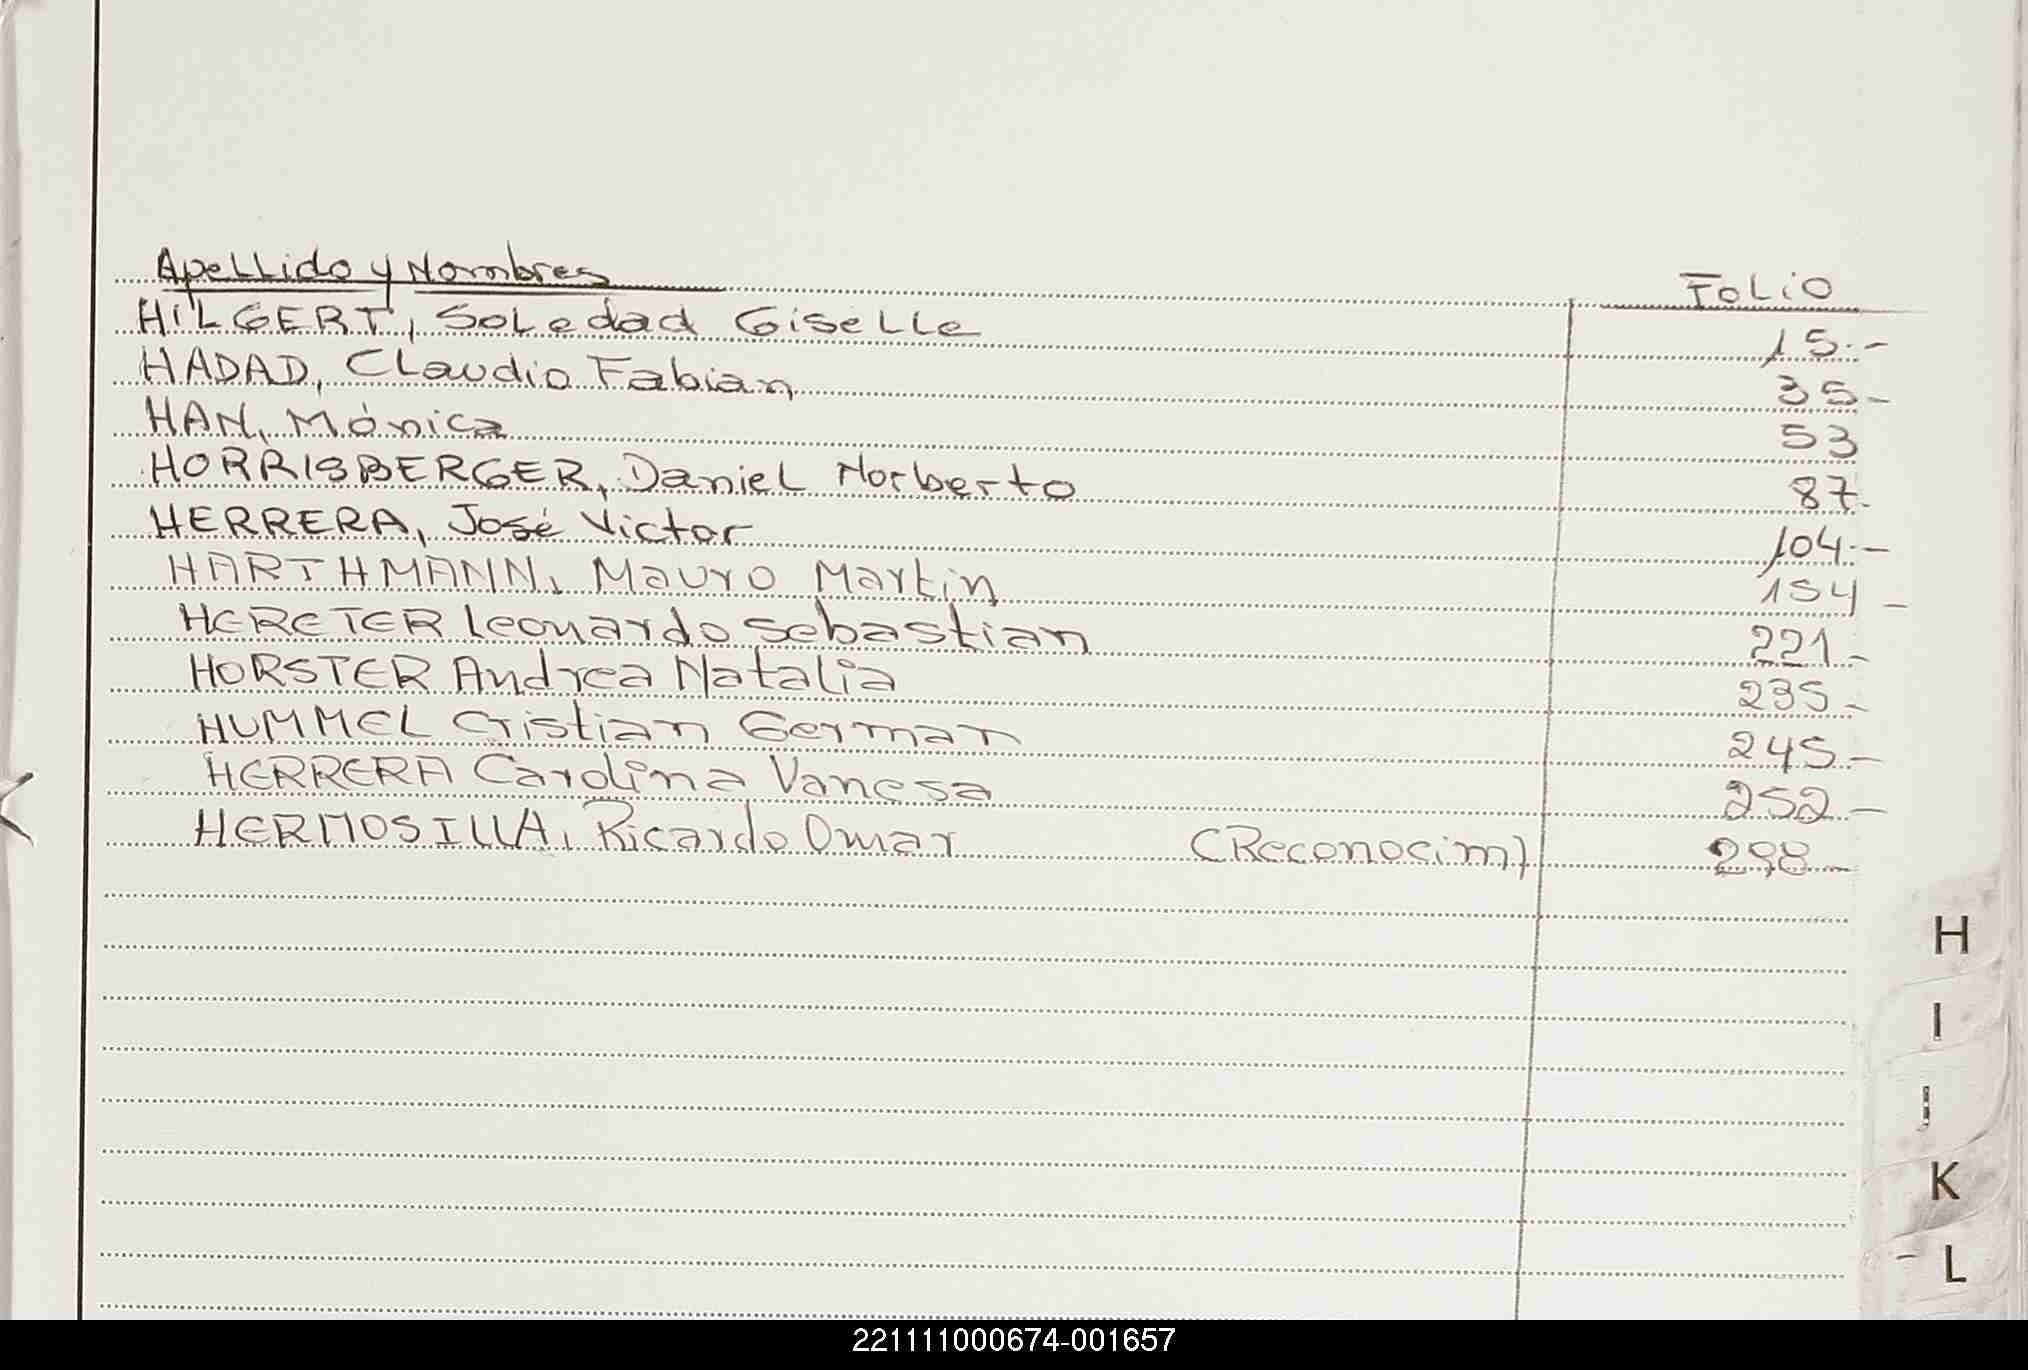 Apellido y Nombres Folio
HILGERT, Soledad Giselle 15.-
HADAD, Claudio Fabian 35-
HAN, Mónica 53
HORRISBERGER, Daniel Norberto 87-
HERRERA, José Victor 104.-
HARTHMANN, Mauro Martin 154-
HERETER Leonardo Sebastian 221-
HORSTER Andrea Natalia 235-
HUMMEL Cristian German 245-
HERRERA Carolina Vanesa 252-
HERMOSILLA, Ricardo Omar (Reconocim)
H
I
J
K
L
221111000674-001657